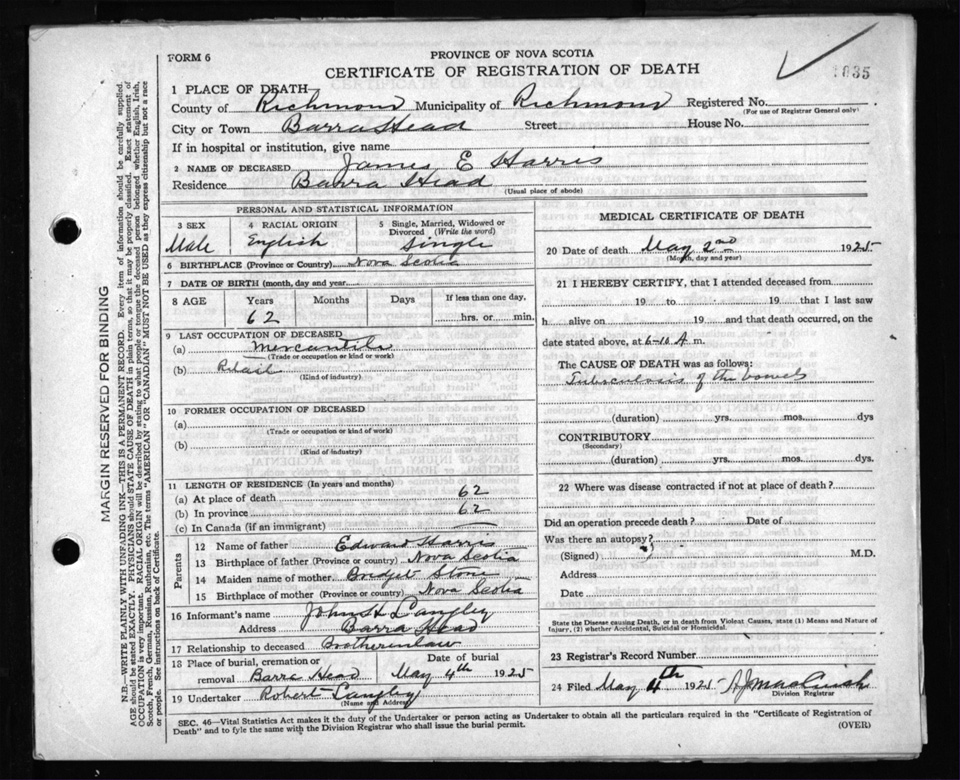 FORM 6
PROVINCE OF NOVA SCOTIA
CERTIFICATE OF REGISTRATION OF DEATH
1035
1 PLACE OF DEATH
County of Richmond Municipality of Richmond Registered No.
(For use of Registrar General only)
City or Town Barra Head Street House No.
If in hospital or institution, give name
2 NAME OF DECEASED James E Harris
Residence Barra Head
(Usual place of abode)
PERSONAL AND STATISTICAL INFORMATION
3 SEX Male
4 RACIAL ORIGIN English
5 Single, Married, Widowed or Divorced (Write the word) Single
6 BIRTHPLACE (Province or Country) Nova Scotia
7 DATE OF BIRTH (month, day and year)
8 AGE Years Months Days If less than one day,
62 hrs. or min.
9 LAST OCCUPATION OF DECEASED
(a) Mercantile
(Trade or occupation or kind of work)
(b) Retail
(Kind of industry)
10 FORMER OCCUPATION OF DECEASED
(a)
(Trade or occupation or kind of work)
(b)
(Kind of industry)
11 LENGTH OF RESIDENCE (In years and months)
(a) At place of death 62
(b) In province 62
(c) In Canada (if an immigrant) —
Parents
12 Name of father Edward Harris
13 Birthplace of father (Province or country) Nova Scotia
14 Maiden name of mother Bridget Stone
15 Birthplace of mother (Province or country) Nova Scotia
16 Informant's name John H Langley
Address Barra Head
17 Relationship to deceased Brotherinlaw
18 Place of burial, cremation or removal Barra Head Date of burial May 4th 1925
19 Undertaker Robert Langley
(Name and Address)
MEDICAL CERTIFICATE OF DEATH
20 Date of death May 2nd 1925
(Month, day and year)
21 I HEREBY CERTIFY, that I attended deceased from
19 to 19 that I last saw
h alive on 19 and that death occurred, on
date stated above, at 6-10 A m.
The CAUSE OF DEATH was as follows:
Tuberculosis of the bowels
(duration) yrs. mos. dys
CONTRIBUTORY
(Secondary)
(duration) yrs. mos. dys.
22 Where was disease contracted if not at place of death?
Did an operation precede death? Date of
Was there an autopsy?
(Signed) M.D.
Address
Date
State the Disease causing Death, or in death from Violent Causes, state (1) Means and Nature of
Injury, (2) whether Accidental, Suicidal or Homicidal.
23 Registrar's Record Number
24 Filed May 4th 1925
Division Registrar
SEC. 46—Vital Statistics Act makes it the duty of the Undertaker or person acting as Undertaker to obtain all the particulars required in the "Certificate of Registration of
Death" and to fyle the same with the Division Registrar who shall issue the burial permit.
(OVER)
MARGIN RESERVED FOR BINDING
N.B.—WRITE PLAINLY WITH UNFADING INK—THIS IS A PERMANENT RECORD. Every item of information should be carefully supplied.
AGE should be stated EXACTLY. PHYSICIANS should STATE CAUSE OF DEATH in plain terms, so that it may be properly classified. Exact statement of
OCCUPATION is very important. RACIAL ORIGIN will be described by stating to what people or tongue the deceased person belonged whether English, Irish,
Scotch, French, German, Russian, Ruthenian, etc. The terms "AMERICAN" OR "CANADIAN" MUST NOT BE USED as they express citizenship but not a race
or people. See instructions on back of Certificate.